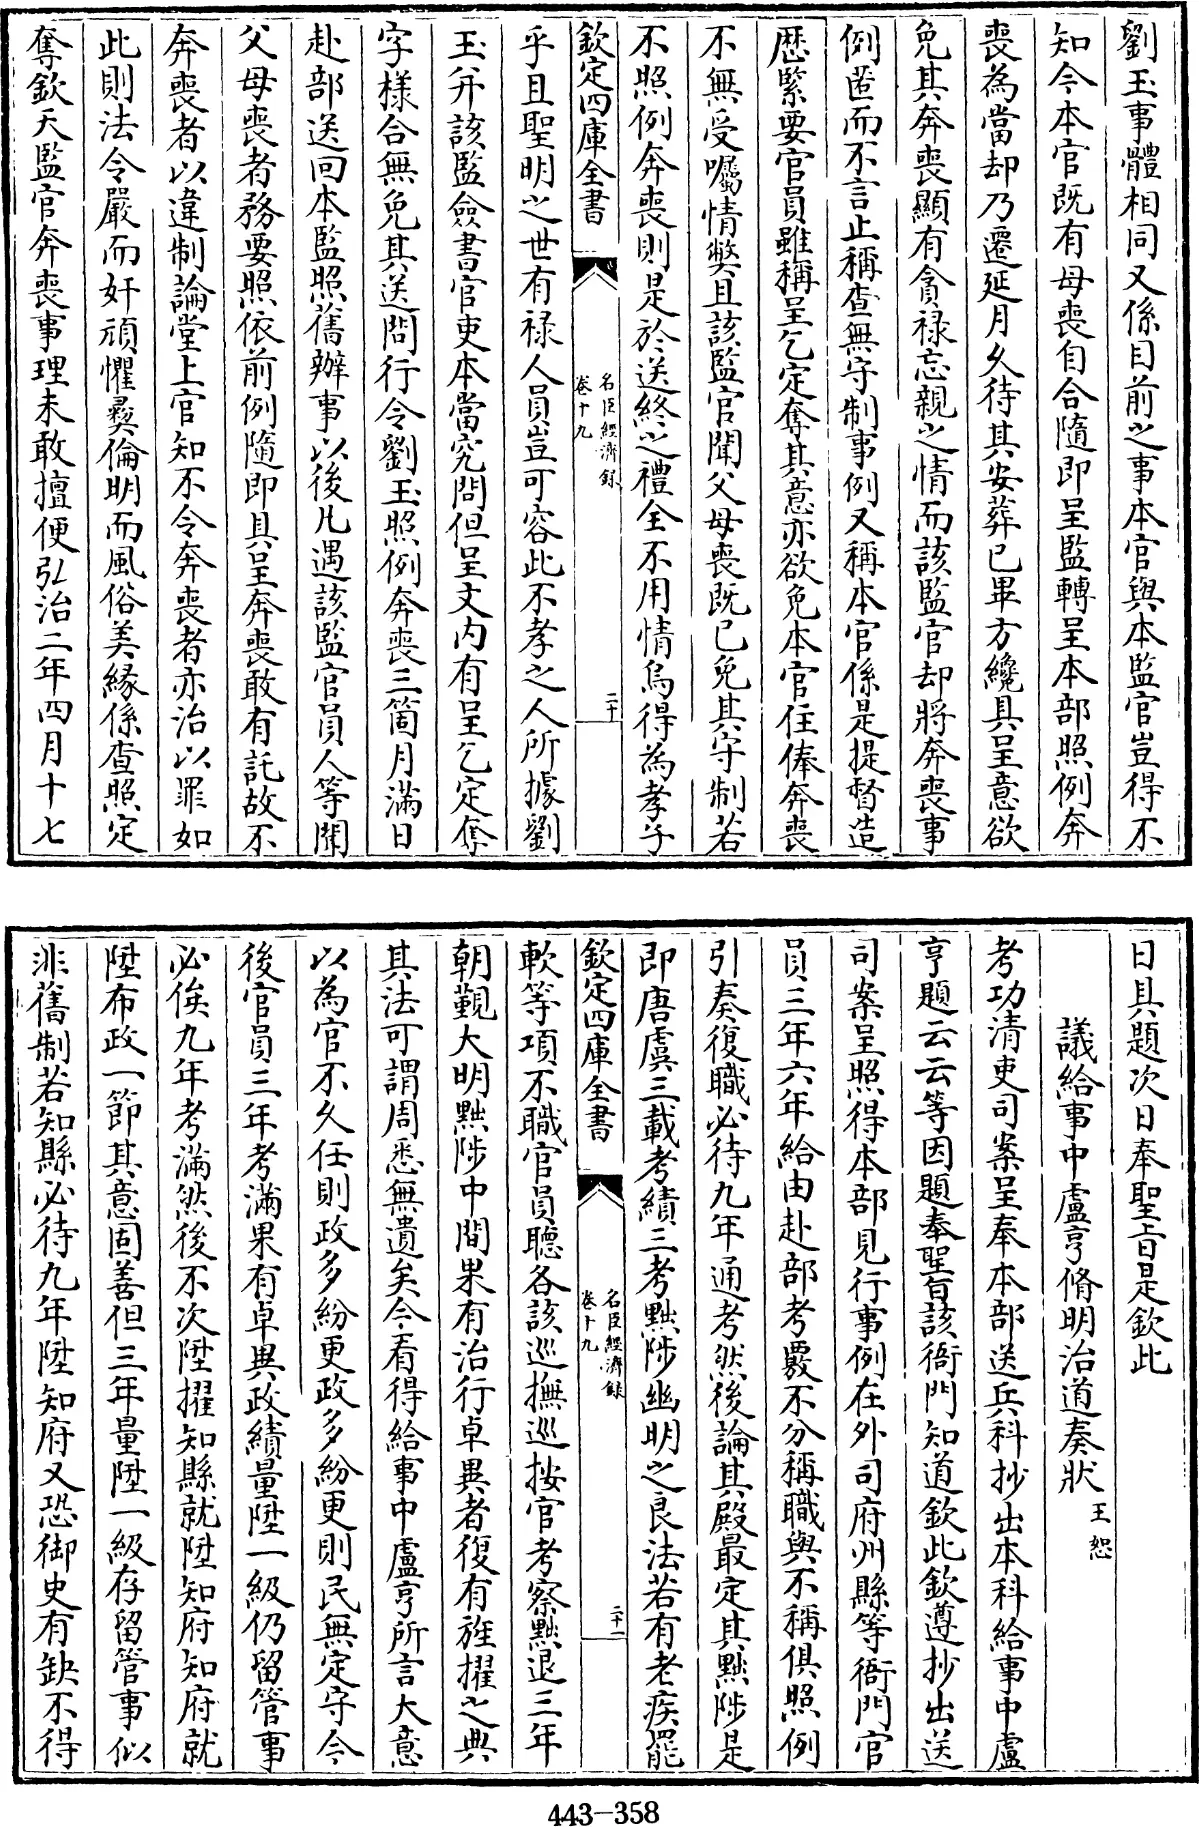 劉玉事體相同又係目前之事本官與本監官豈得不
知今本官既有母喪自合隨即呈監轉呈本部照例奔
喪為當却乃遷延月久待其安葬已畢方纔具呈意欲
免其奔喪顯有貪禄忘親之情而該監官却將奔喪事
例匿而不言止稱查無守制事例又稱本官係是提督造
厯緊要官員雖稱呈乞定奪其意亦欲免本官住俸奔喪
不無受囑情弊且該監官聞父母喪既已免其守制若
不照例奔喪則是於送終之禮全不用情烏得為孝子
欽定四庫全書
名臣經濟録
卷十九
二十
乎且聖明之世有禄人員豈可容此不孝之人所據劉
玉并該監僉書官吏本當究問但呈文内有呈乞定奪
字様合無免其送問行令劉玉照例奔喪三箇月滿日
赴部送回本監照舊辦事以後凡遇該監官員人等聞
父母喪者務要照依前例隨即具呈奔喪敢有託故不
奔喪者以違制論堂上官知不令奔喪者亦治以罪如
此則法令嚴而奸頑懼彛倫明而風俗美縁係查照定
奪欽天監官奔喪事理未敢擅便弘治二年四月十七
日具題次日奉聖旨是欽此
議給事中盧亨脩明治道奏狀 王恕
考功清吏司案呈奉本部送兵科抄出本科給事中盧
亨題云云等因題奉聖旨該衙門知道欽此欽遵抄出送
司案呈照得本部見行事例在外司府州縣等衙門官
員三年六年給由赴部考覈不分稱職與不稱俱照例
引奏復職必待九年通考然後論其殿最定其黜陟是
即唐虞三載考績三考黜陟幽明之良法若有老疾罷
欽定四庫全書
名臣經濟録
卷十九
二十一
軟等項不職官員聽各該巡撫巡按官考察黜退三年
朝覲大明黜陟中間果有治行卓異者復有旌擢之典
其法可謂周悉無遺矣今看得給事中盧亨所言大意
以為官不久任則政多紛更政多紛更則民無定守今
後官員三年考滿果有卓異政績量陞一級仍留管事
必俟九年考滿然後不次陞擢知縣就陞知府知府就
陞布政一節其意固善但三年量陞一級存留管事似
非舊制若知縣必待九年陞知府又恐御史有缺不得
443-358